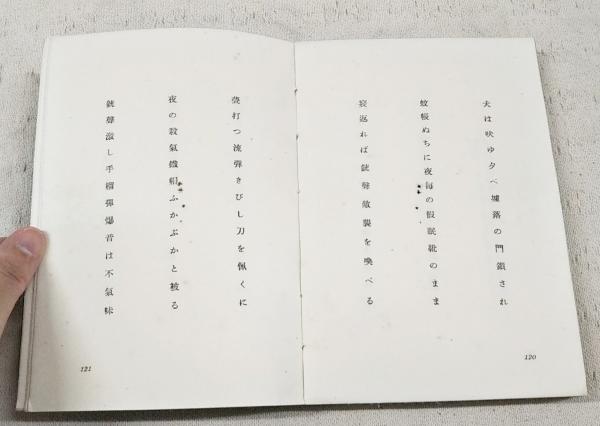 犬は吠ゆ夕べ墟落の門鎖され
蚊帳ぬちに夜毎の假眠靴のまま
寝返れば銃聲敵襲を喚べる
120
甍打つ流弾きびし刀を佩くに
夜の殺氣鐵帽ふかぶかと被る
銃聲激し手榴彈爆音は不氣味
121